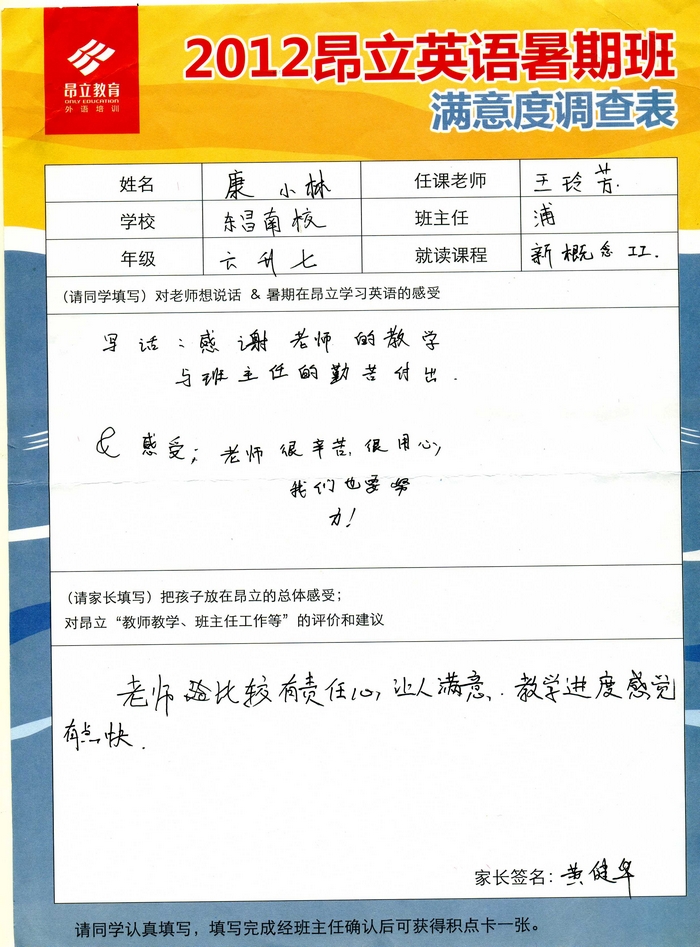 昂立教育
ONLY EDUCATION
外语培训
2012昂立英语暑期班
满意度调查表
姓名 康小林 任课老师 王玲芳.
学校 东昌南校 班主任 浦
年级 六升七 就读课程 新概念II.
（请同学填写）对老师想说话 & 暑期在昂立学习英语的感受
写话：感谢老师的教学
与班主任的勤苦付出.
& 感受；老师很辛苦,很用心,
我们也要努
力!
（请家长填写）把孩子放在昂立的总体感受；
对昂立“教师教学、班主任工作等”的评价和建议
老师比较有责任心,让人满意.教学进度感觉
有点快.
家长签名：黄健华
请同学认真填写，填写完成经班主任确认后可获得积点卡一张。